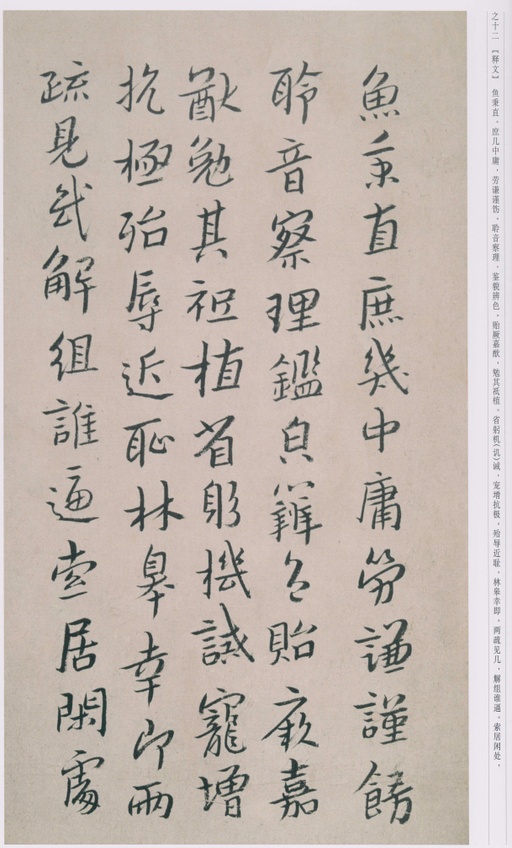 之十二 【释文】 鱼秉直。庶几中庸，劳谦谨饬。聆音察理，鉴貌辨色。贻厥嘉猷，勉其祗植。省躬机（讥）诫，宠增抗极。殆辱近耻，林皋幸即。两疏见几，解组谁逼。索居闲处，
魚秉直庶幾中庸勞謙謹飭
聆音察理鑑皃辨色貽厥嘉
猷勉其祗植省躬機誡寵增
抗極殆辱近恥林皋幸即兩
疏見幾解組誰逼索居閑處